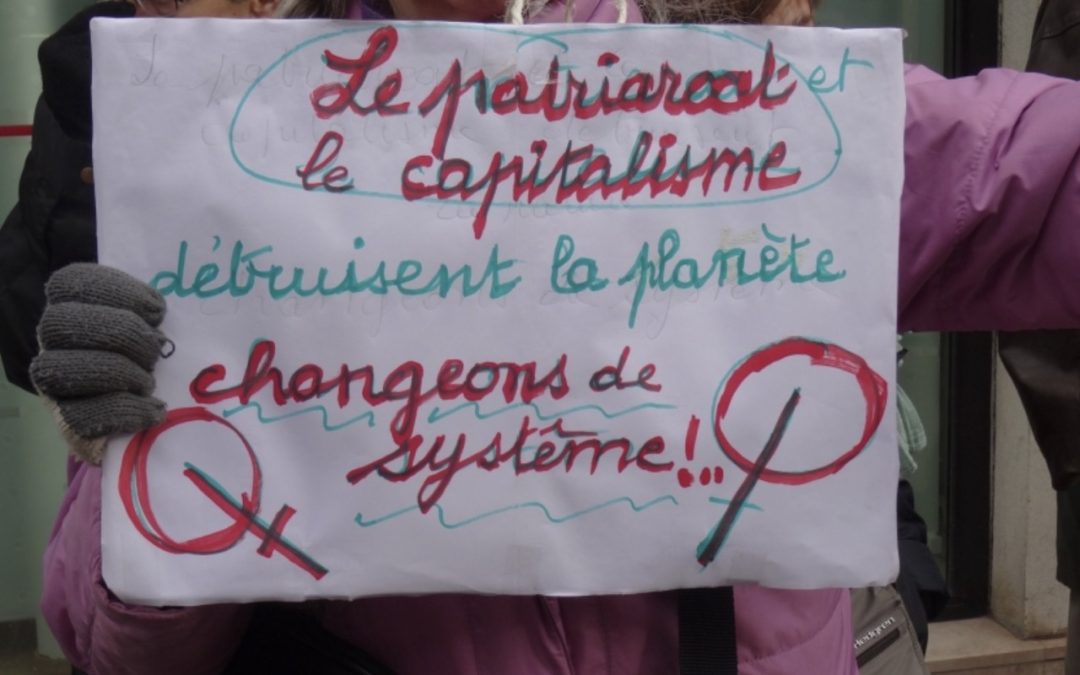 Le patriarcat et
le capitalisme
détruisent la planète
changeons de
système!..